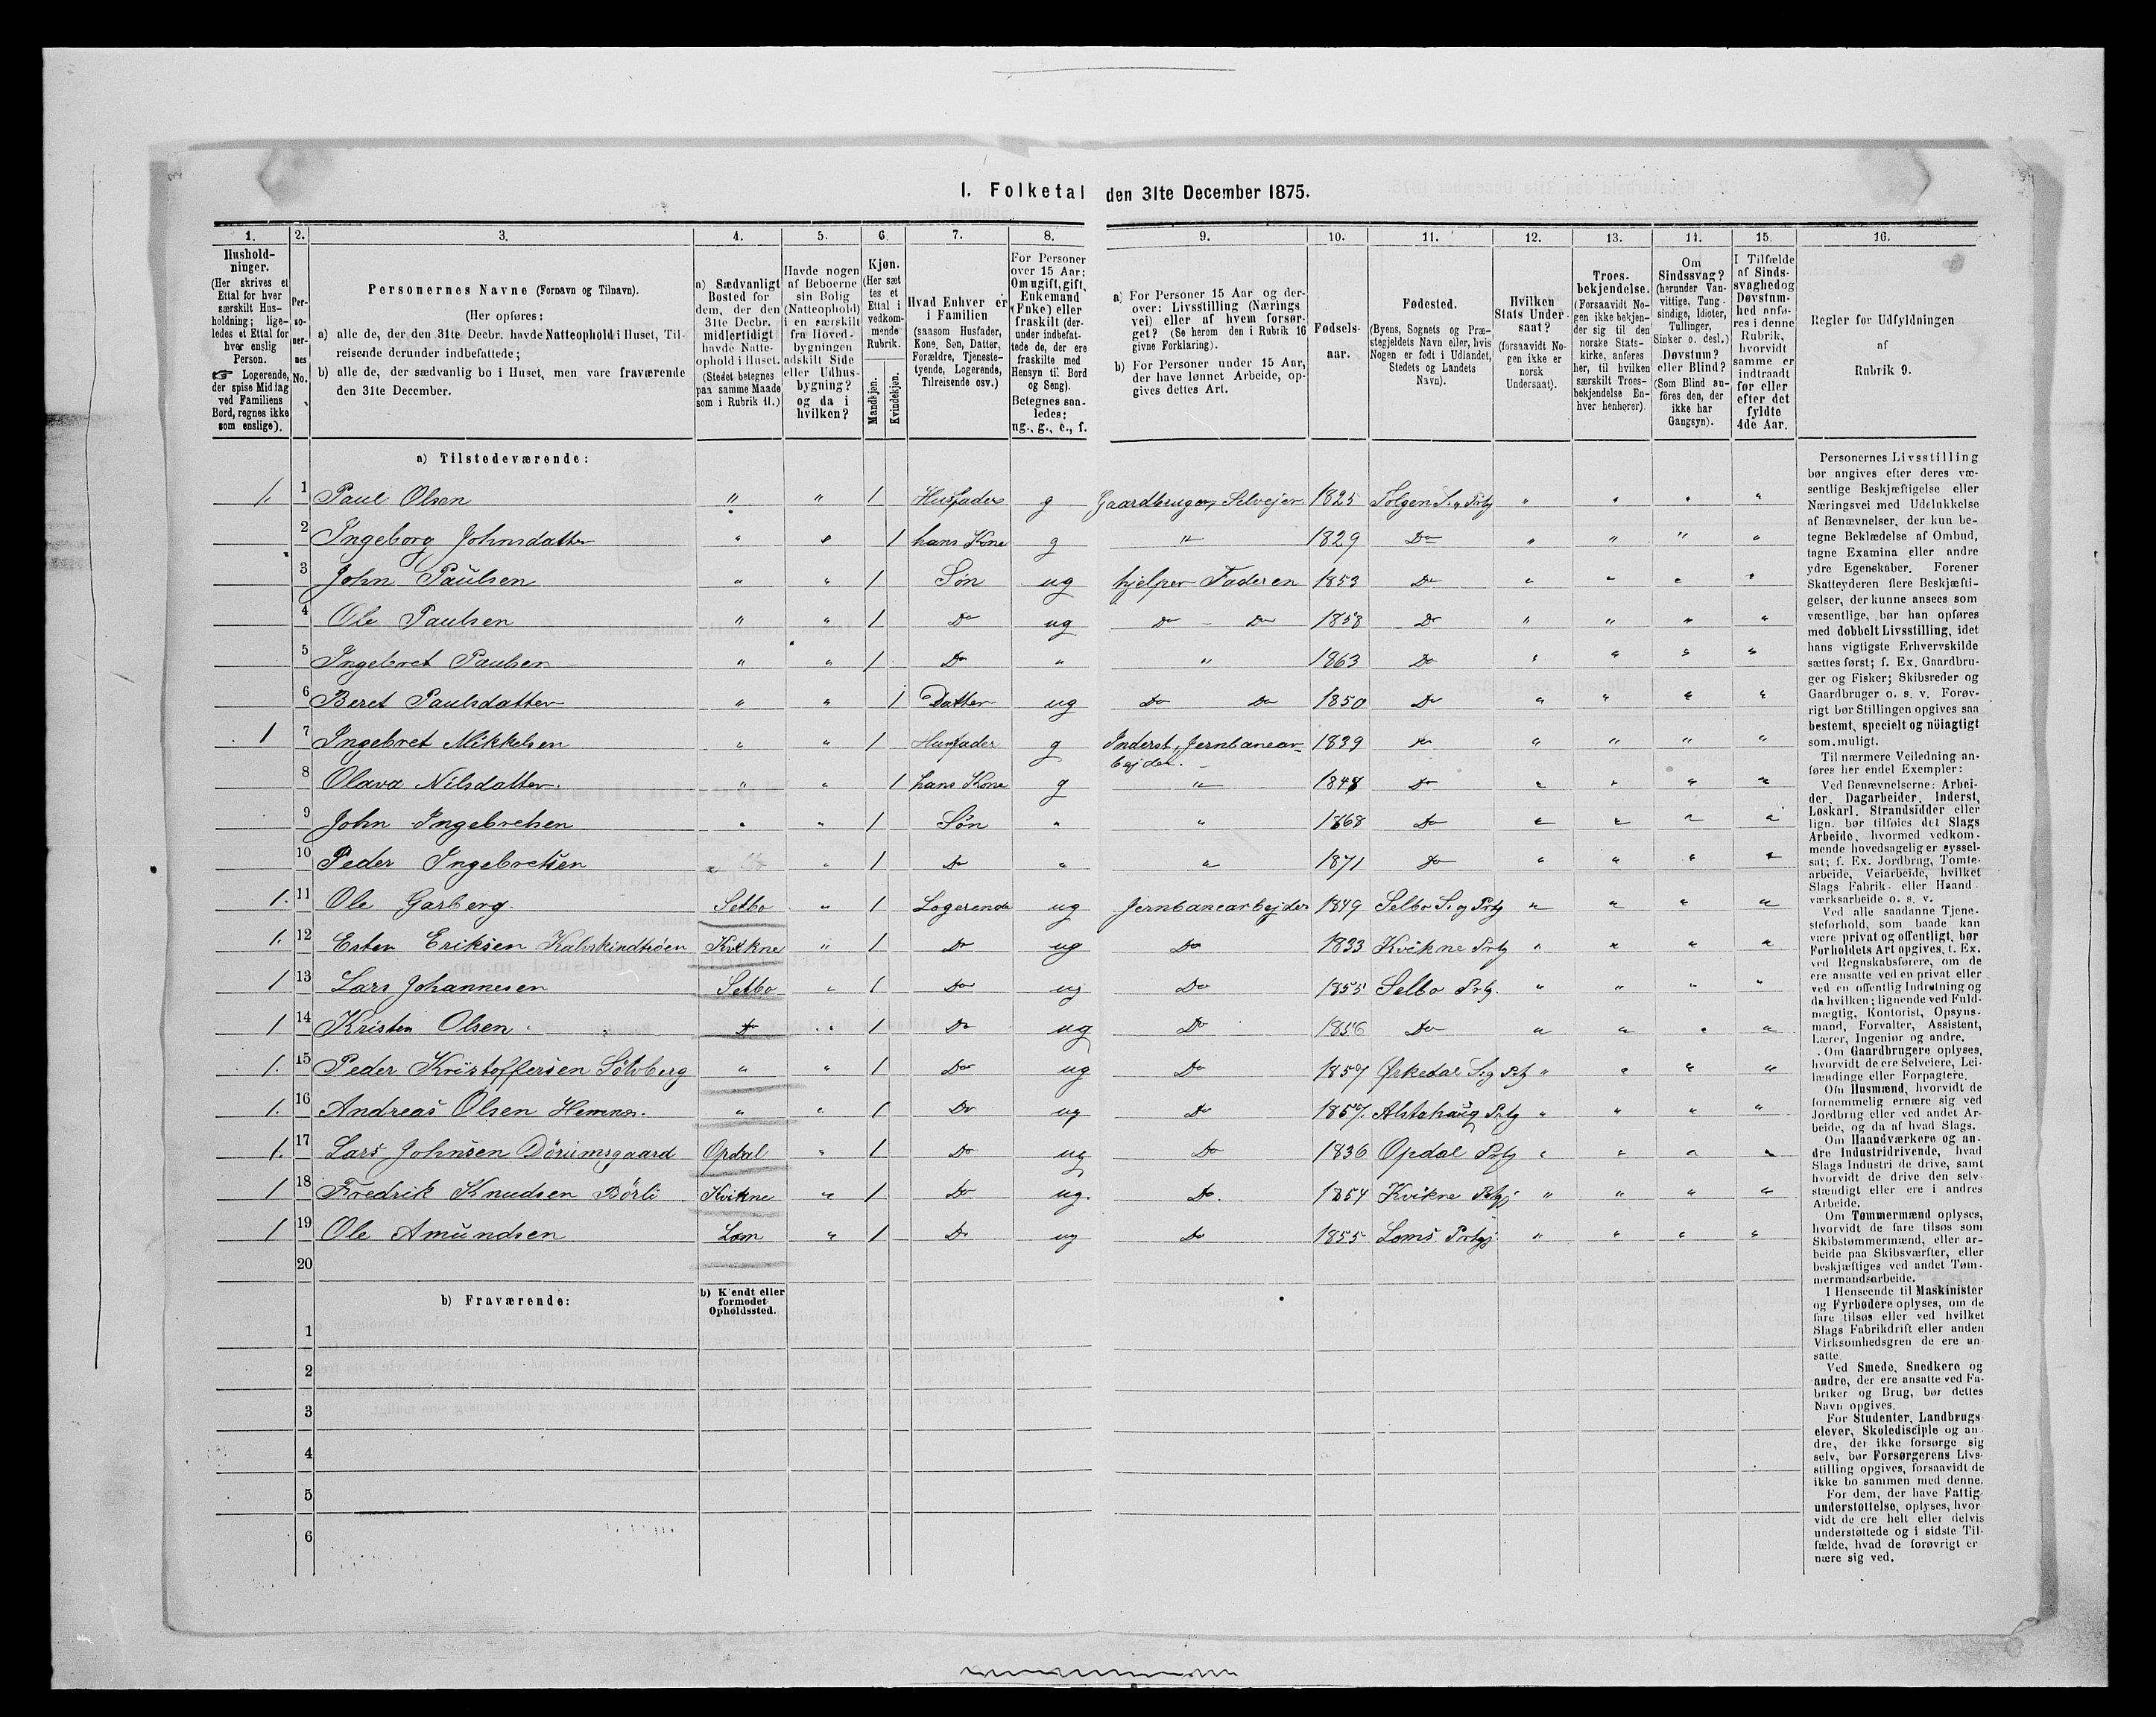 I. Folketal den 31te December 1875.
1. 2. 3. 4. 5. 6. 7. 8. 9. 10. 11. 12. 13. 14. 15. 16.
Hushold-
ninger.
(Her skrives et
Ettal for hver
særskilt Hus-
holdning; lige-
ledes et Ettal for
hver enslig
Person.
☞ Logerende,
der spise Middag
ved Familiens
Bord, regnes ikke
som enslige).
Per-
so-
ner-
nes
No.
Personernes Navne (Fornavn og Tilnavn).
(Her opføres:
a) alle de, der den 31te Decbr. havde Natteophold i Huset, Til-
reisende derunder indbefattede;
b) alle de, der sædvanlig bo i Huset, men vare fraværende
den 31te December.
a) Sædvanligt
Bosted for
dem, der den
31te Decbr.
midlertidigt
havde Natte-
ophold i Huset.
(Stedet betegnes
paa samme Maade
som i Rubrik 11.)
Havde nogen
af Beboerne
sin Bolig
(Natteophold)
i en særskilt
fra Hoved-
bygningen
adskilt Side
eller Udhus-
bygning?
og da i
hvilken?
Kjøn.
(Her sæt
tes et
Ettal i
vedkom-
mende
Rubrik.
Mandkjøn.
Kvindekjøn.
Hvad Enhver er
i Familien
(saasom Husfader,
Kone, Søn, Datter,
Forældre, Tjeneste-
tyende, Logerende,
Tilreisende osv.)
For Personer
over 15 Aar:
Om ugift, gift,
Enkemand
(Enke) eller
fraskilt (der-
under indbefat-
tede de, der ere
fraskilte med
Hensyn til Bord
og Seng).
Betegnes saa-
ledes:
ug., g., e., f.
a) For Personer 15 Aar og der-
over: Livsstilling (Nærings
vei) eller af hvem forsør-
get? (Se herom den i Rubrik 16
givne Forklaring).
b) For Personer under 15 Aar,
der have lønnet Arbeide, op-
gives dettes Art.
Fødsels-
aar.
Fødested.
(Byens, Sognets og Præ-
stegjeldets Navn eller, hvis
Nogen er født i Udlandet,
Stedets og Landets
Navn).
Hvilken
Stats Under-
saat?
(forsaavidt No-
gen ikke er
norsk
Undersaat).
Troes-
bekjendelse.
(Forsaavidt No-
gen ikke bekjen-
der sig til den
norske Stats-
kirke, anføres
her, til hvilken
særskilt Troes-
bekjendelse En-
hver henhører).
Om
Sindssvag?
(herunder Van-
vittige, Tung-
sindige, Idioter,
Tullinger,
Sinker o. desl.)
Døvstum?
eller Blind?
(Som Blind an-
føres den, der
ikke har
Gangsyn).
I Tilfælde
af Sinds-
svaghed og
Døvstum-
hed anfø-
res i denne
Rubrik,
hvorvidt
samme er
indtraadt
før eller
efter det
fyldte
4de Aar.
Regler for Udfyldningen
af
Rubrik 9.
a) Tilstedeværende:
1. 1 Paul Olsen " " 1 Husfader g Gaardbruger, Selvejer 1825 Tolgen S. og Prtg " " " "
2 Ingeborg Johnsdatter " " 1 hans Kone g " 1829 Do " " " "
3 John Paulsen " " 1 Søn ug hjelper Faderen 1853 Do " " " "
4 Ole Paulsen " " 1 Do ug Do - Do 1858 Do " " " "
5 Ingebret Paulsen " " 1 Do " " 1863 Do " " " "
6 Beret Paulsdatter " " 1 Datter ug Do Do 1850 Do " " " "
1 7 Ingebret Mikkelsen " " 1 Husfader g Inderst, Jernbanear-
bejder. 1839 Do " " " "
8 Olava Nilsdatter " " 1 hans Kone g " 1848 Do " " " "
9 John Ingebretsen " " 1 Søn " " 1868 Do " " " "
10 Peder Ingebretsen " " 1 Do " " 1871 Do " " " "
1. 11 Ole Garberg. Selbo " 1 Logerende ug Jernbanearbejder 1849 Selbo S. og Prtg " " " "
1. 12 Esten Eriksen Kalvskindtøen Kvikne " 1 Do ug Do 1833 Kvikne Prtg " " " "
1 13 Lars Johannesen Selbo " 1 Do ug Do 1855 Selbo Prtg. " " " "
1 14 Kristen Olsen Do " 1 Do ug Do 1856 Do " " " "
1. 15 Peder Kristoffersen Sölvberg " " 1 Do ug Do 1857 Ørkedal S og Prtg " " " "
1. 16 Andreas Olsen Hemnes. " " 1 Do ug Do 1857. Alstahaug Prtg " " " "
1. 17 Lars Johnsen Dörumsgaard Opdal " 1 Do ug Do 1836 Opdal Prtg " " " "
1 18 Fredrik Knudsen Börli Kvikne " 1 Do ug. Do. 1854 Kvikne Prtgj " " " "
1 19 Ole Amundsen Lom " 1 Do ug Do 1855 Loms Prtgj " " " "
20
b) Fraværende:
b) Kjendt eller
formodet
Opholdssted.
1
2
3
4
5
6
Personernes Livsstilling
bør angives efter deres væ-
sentlige Beskjæftigelse eller
Næringsvei med Udelukkelse
af Benævnelser, der kun be-
tegne Beklædelse af Ombud,
tagne Examina eller andre
ydre Egenskaber. Forener
Skatteyderen flere Beskjæfti-
gelser, der kunne ansees som
væsentlige, bør han opføres
med dobbelt Livsstilling, idet
hans vigtigste Erhvervskilde
sættes først; f. Ex. Gaardbru-
ger og Fisker; Skibsreder og
Gaardbruger o. s. v. Forøv-
rigt bør Stillingen opgives saa
bestemt, specielt og nöiagtigt
som muligt.
Til nærmere Veiledning an-
føres her endel Exempler:
Ved Benævnelserne: Arbei-
der, Dagarbeider, Inderst,
Løskarl, Strandsidder eller
lign. bør tilføies det Slags
Arbeide, hvormed vedkom-
mende hovedsagelig er syssel-
sat; f. Ex. Jordbrug, Tomte-
arbeide, Veiarbeide, hvilket
Slags Fabrik- eller Haand-
værksarbeide o. s. v.
Ved alle saadanne Tjene-
steforhold, som baade kan
være privat og offentligt, bør
Forholdets Art opgives, t. Ex.
ved Regnskabsførere, om de
ere ansatte ved en privat eller
ved en offentlig Indretning og
da hvilken; lignende ved Fuld-
mægtig, Kontorist, Opsyns-
mand, Forvalter, Assistent,
Lærer, Ingeniør og andre.
Om Gaardbrugere oplyses,
hvorvidt de ere Selveiere, Lei-
lændinge eller Forpagtere.
Om Husmænd, hvorvidt de
fornemmelig ernære sig ved
Jordbrug eller ved andet Ar-
beide, og da af hvad Slags.
Om Haandværkere og an-
dre Industridrivende, hvad
Slags Industri de drive, samt
hvorvidt de drive den selv-
stændigt eller ere i andres
Arbeide.
Om Tømmermænd oplyses,
hvorvidt de fare tilsøs som
Skibstømmermænd, eller ar-
beide paa Skibsværfter, eller
beskjæftiges ved andet Tøm-
mermandsarbeide.
I Henseende til Maskinister
og Fyrbødere oplyses, om de
fare tilsøs eller ved hvilket
Slags Fabrikdrift eller anden
Virksomhedsgren de ere an-
satte.
Ved Smede, Snedkere og
andre, der ere ansatte ved Fa-
briker og Brug, bør dettes
Navn opgives.
For Studenter, Landbrugs-
elever, Skoledisciple og an-
dre, der ikke forsørge sig
selv, bør Forsørgerens Livs-
stilling opgives, forsaavidt de
ikke bo sammen med denne.
For dem, der have Fattig-
understøttelse, oplyses, hvor
vidt de ere helt eller delvis
understøttede og i sidste Til-
fælde, hvad de forøvrigt er
nære sig ved.